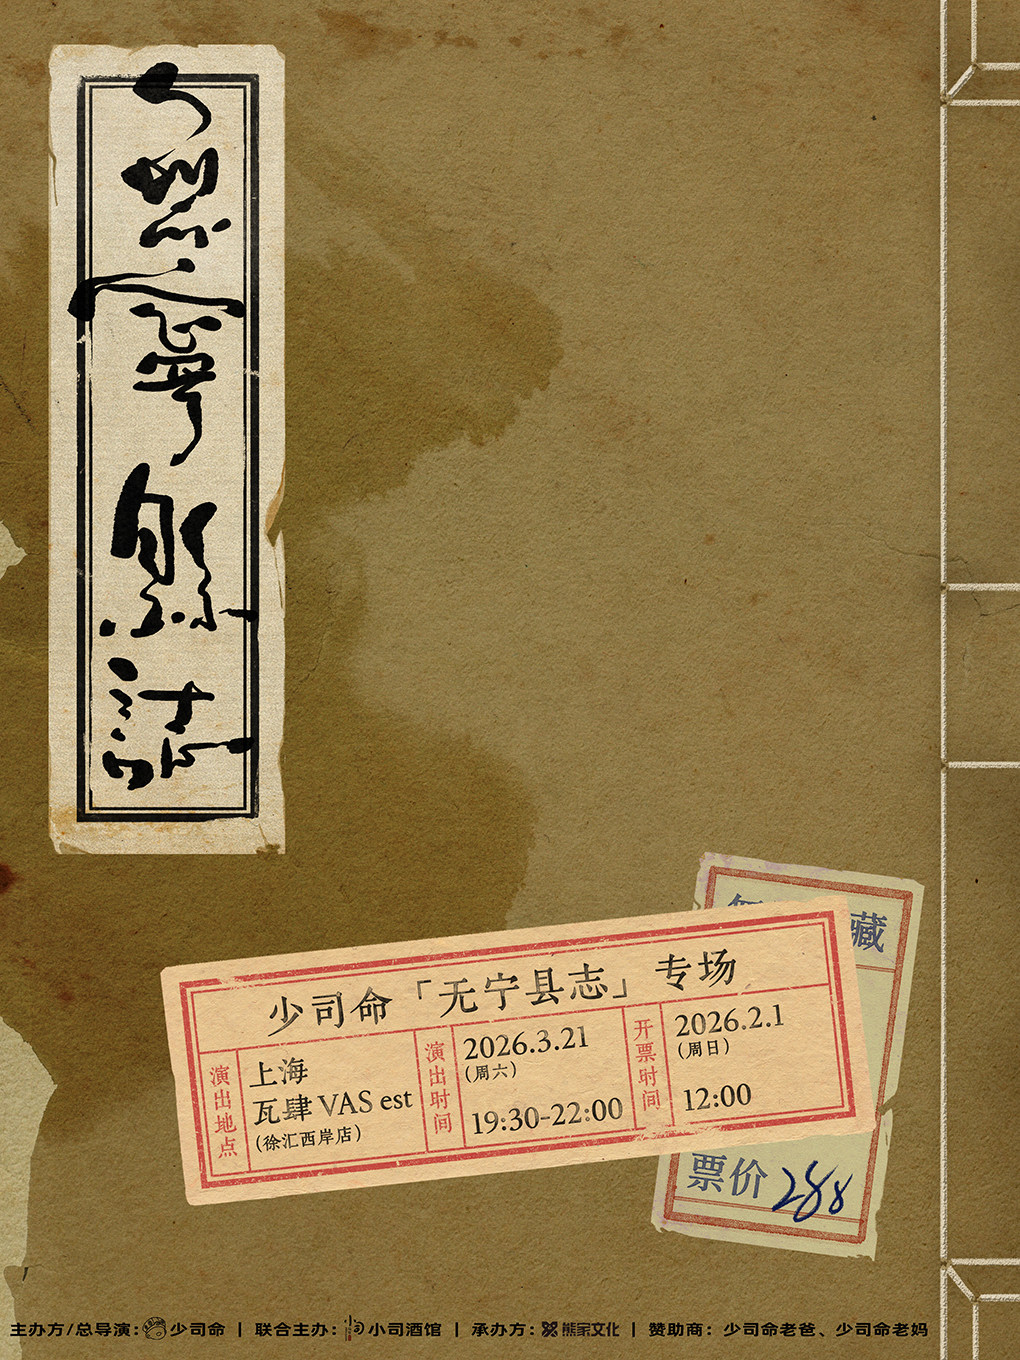 无宁县志
藏
少司命「无宁县志」专场
演出地点
上海
瓦肆 VAS est
(徐汇西岸店)
演出时间
2026.3.21
(周六)
19:30-22:00
开票时间
2026.2.1
(周日)
12:00
票价 288
主办方/总导演: 少司命 | 联合主办: 小司酒馆 | 承办方: 熊家文化 | 赞助商: 少司命老爸、少司命老妈